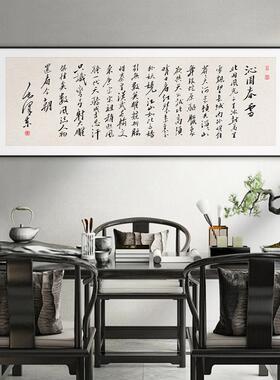 沁园春雪
北国风光千里冰封万里
雪飘望长城内外惟余莽
莽大河上下顿失滔滔山
舞银蛇原驰腊象
欲与天公试比高须
晴日看红装素裹分外
妖娆江山如此多娇
引无数英雄竞折腰
惜秦皇汉武略输文
采唐宗宋祖稍逊风骚一
代天骄成吉思汗
只识弯弓射大雕
俱往矣数风流人物
还看今朝
毛泽东